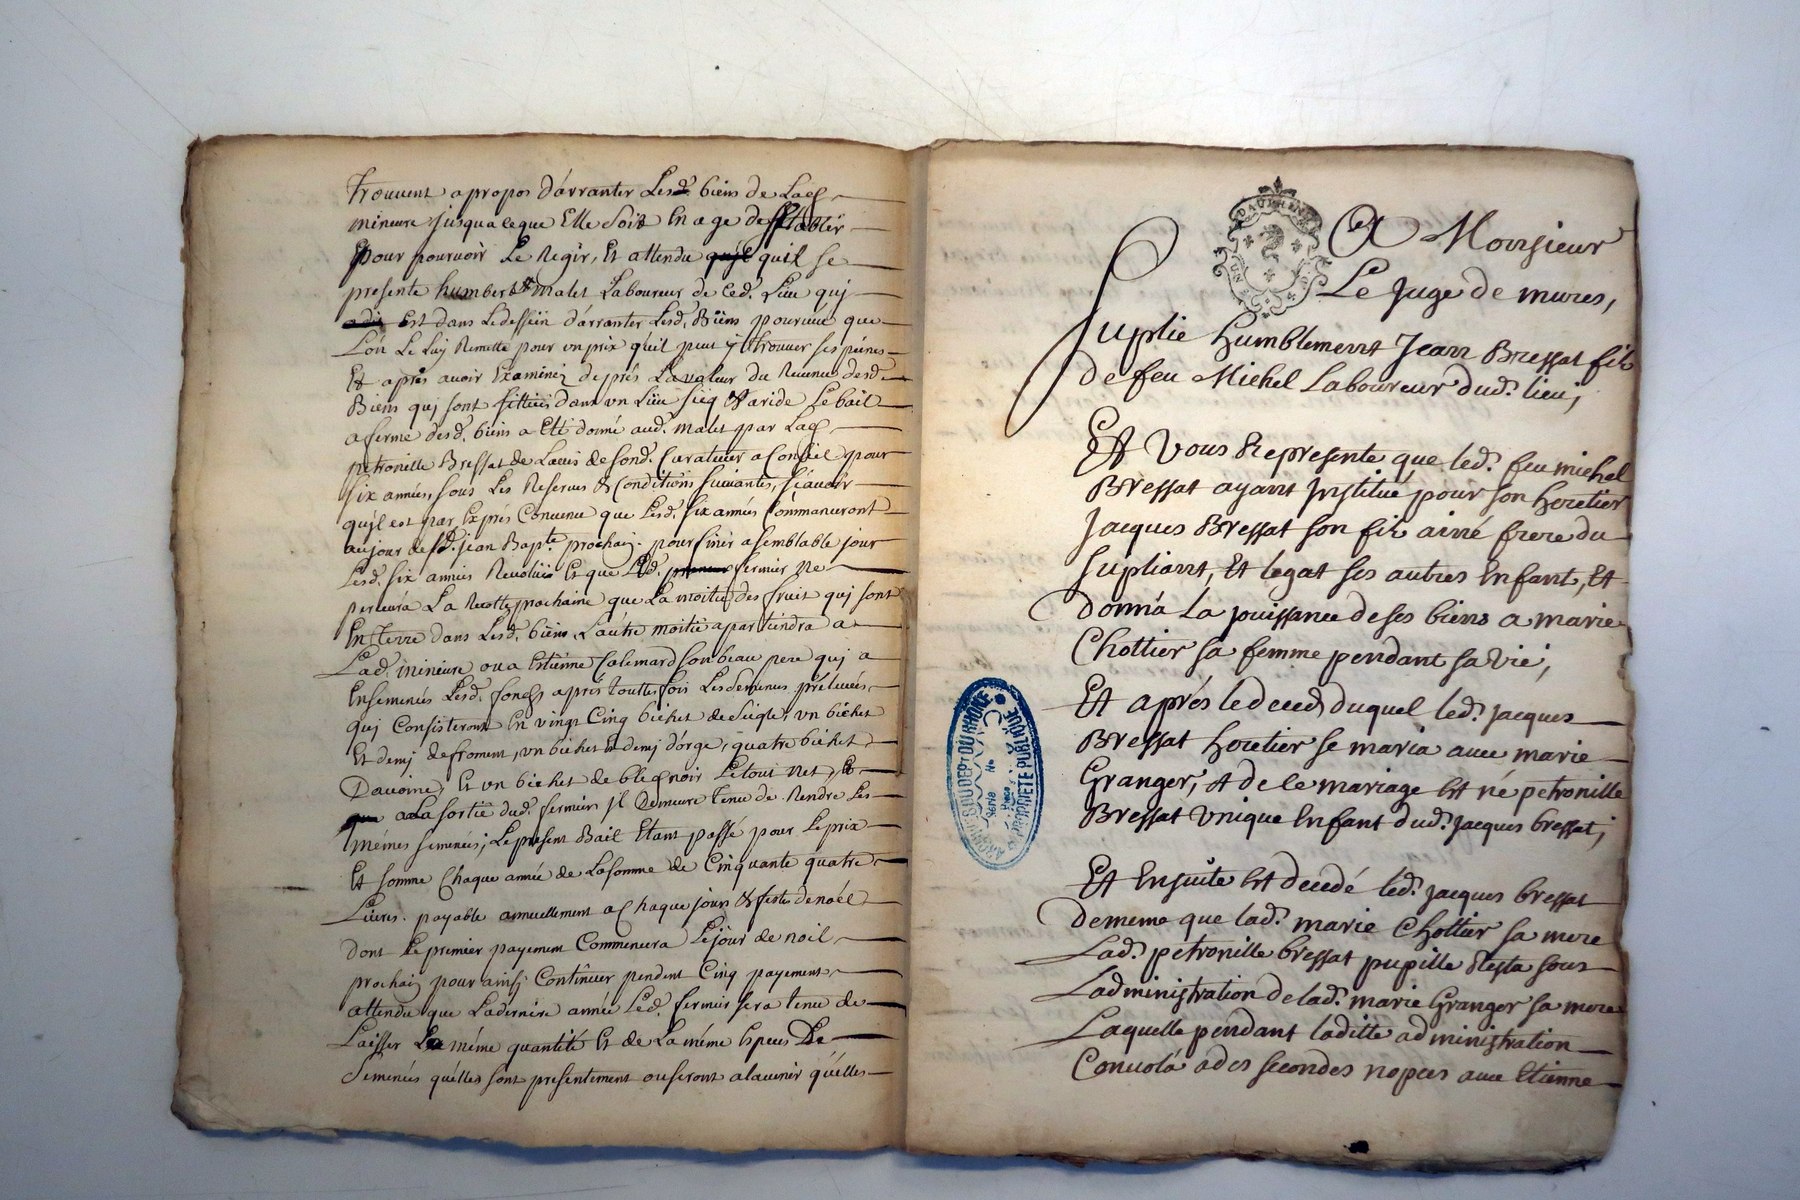 trouvent a propos d'arranter Lesd. biens de Lad.
mineure jusqua ceque Elle soit En age de stablir
Pour pourvoir Le Regir, Et attendu quil se
presente humbert malet Laboureur de Ced. Lieu quj
Est dans Ledessein d'arranter Lesd. Biens pourveu que
L'on Le Luy Remette pour un prix quil peut y trouver ses peines
Et après avoir Examinéz de prés La valeur du Revenu desd.
Biens quj sont sittués dans un Lieu sieq & aride Le bail
a ferme desd. biens a Eté donné aud. malet par Lad.
petronille Bressat de Lavis de sond. Curateur a Conseil pour
six années, sous Les Reserves & Conditions suivantes, sçavoir
qu'jl est par Exprés Convenu que Lesd. six années Commanceront
au jour de St. jean Bapte. prochain pour finir a semblable jour
Lesd. six années Revolües Et que Led. fermier ne
percevra La Recolte prochaine que La moitié des fruit quj sont
En Terre dans Lesd. biens L'autre moitié apartiendra a
Lad. mineure ou a Estienne Calemard son beau pere quj a
Ensemencés Lesd. fonds aprés touttes fois Les semences prélevées
quj Consisteront En vingt Cinq bichet de seigle, un bichet
Et demj de froment, un bichet Et demj d'orge, quatre bichet
D'avoine, Et un bichet de bled noir Le tout net, &
a La sortie dud. fermier jl Demeure tenu de Rendre Les
mémes semences; Le present Bail Etant passé pour Le prix
Et somme Chaque année de La somme de Cinquante quatre
Livres. payable annuellement a Chaque jour & feste de noél
dont Le premier payement Commencera Le jour de noél
prochain pour ainsj Continuer pendent Cinq payement
attendu que La derniere année Led. fermier sera tenu de
Laisser La méme quantité Et de La méme Espece De
semences qu'elles sont presentement ou seront alavenir qu'elles
DAUPHINE
A Monsieur
Le Juge de mures,
Suplie humblement Jean Bressat fils
de feu Michel Laboureur dud. lieu,
Et Vous Represente que led. feu michel
Bressat ayant Institué pour son heretier
Jacques Bressat son fils ainé frere du
supliant, Et legat ses autres Enfant, Et
donna La jouissance de ses biens a marie
Chottier sa femme pendant sa vie,
Et aprés le deced duquel led. jacques
Bressat heretier se maria avec marie
Granger, & de ce mariage Est né petronille
Bressat Unique Enfant dud. jacques bressat;
Et Ensuite Est decedé led. jacques bressat
de meme que lad. marie Chottier sa mere
Lad. petronille bressat pupille Resta sous
Ladministration de lad. marie Granger sa mere
Laquelle pendant laditte administration
Convola a des secondes nopces avec Etienne
ARCHIVES DU DEPT DU RHONE
Série
No
Pièce
PROPRIETE PUBLIQUE